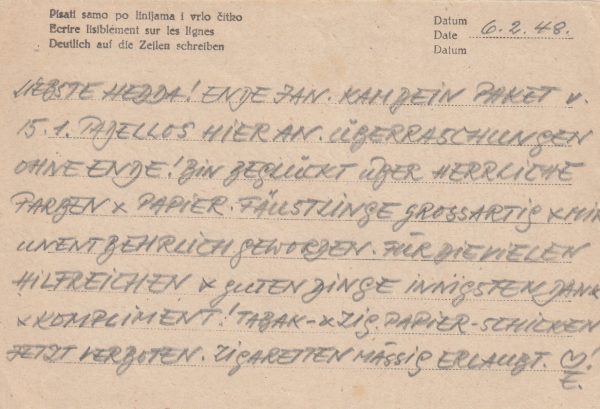 Pisati samo po linijama i vrlo čitko
Ecrire lisiblément sur les lignes
Deutlich auf die Zeilen schreiben
Datum
Date 6.2.48.
Datum
LIEBSTE HEDDA! ENDE JAN. KAM DEIN PAKET v.
15.1. TADELLOS HIER AN. ÜBERRASCHUNGEN
OHNE ENDE! BIN BEGLÜCKT ÜBER HERRLICHE
FARBEN & PAPIER. FÄUSTLINGE GROSSARTIG & MIR
UNENTBEHRLICH GEWORDEN. FÜR DIE VIELEN
HILFREICHEN & GUTEN DINGE INNIGSTEN DANK
& KOMPLIMENT! TABAK- & ZIG. PAPIER-SCHICKEN
JETZT VERBOTEN. ZIGARETTEN MÄSSIG ERLAUBT. ♡!
E.